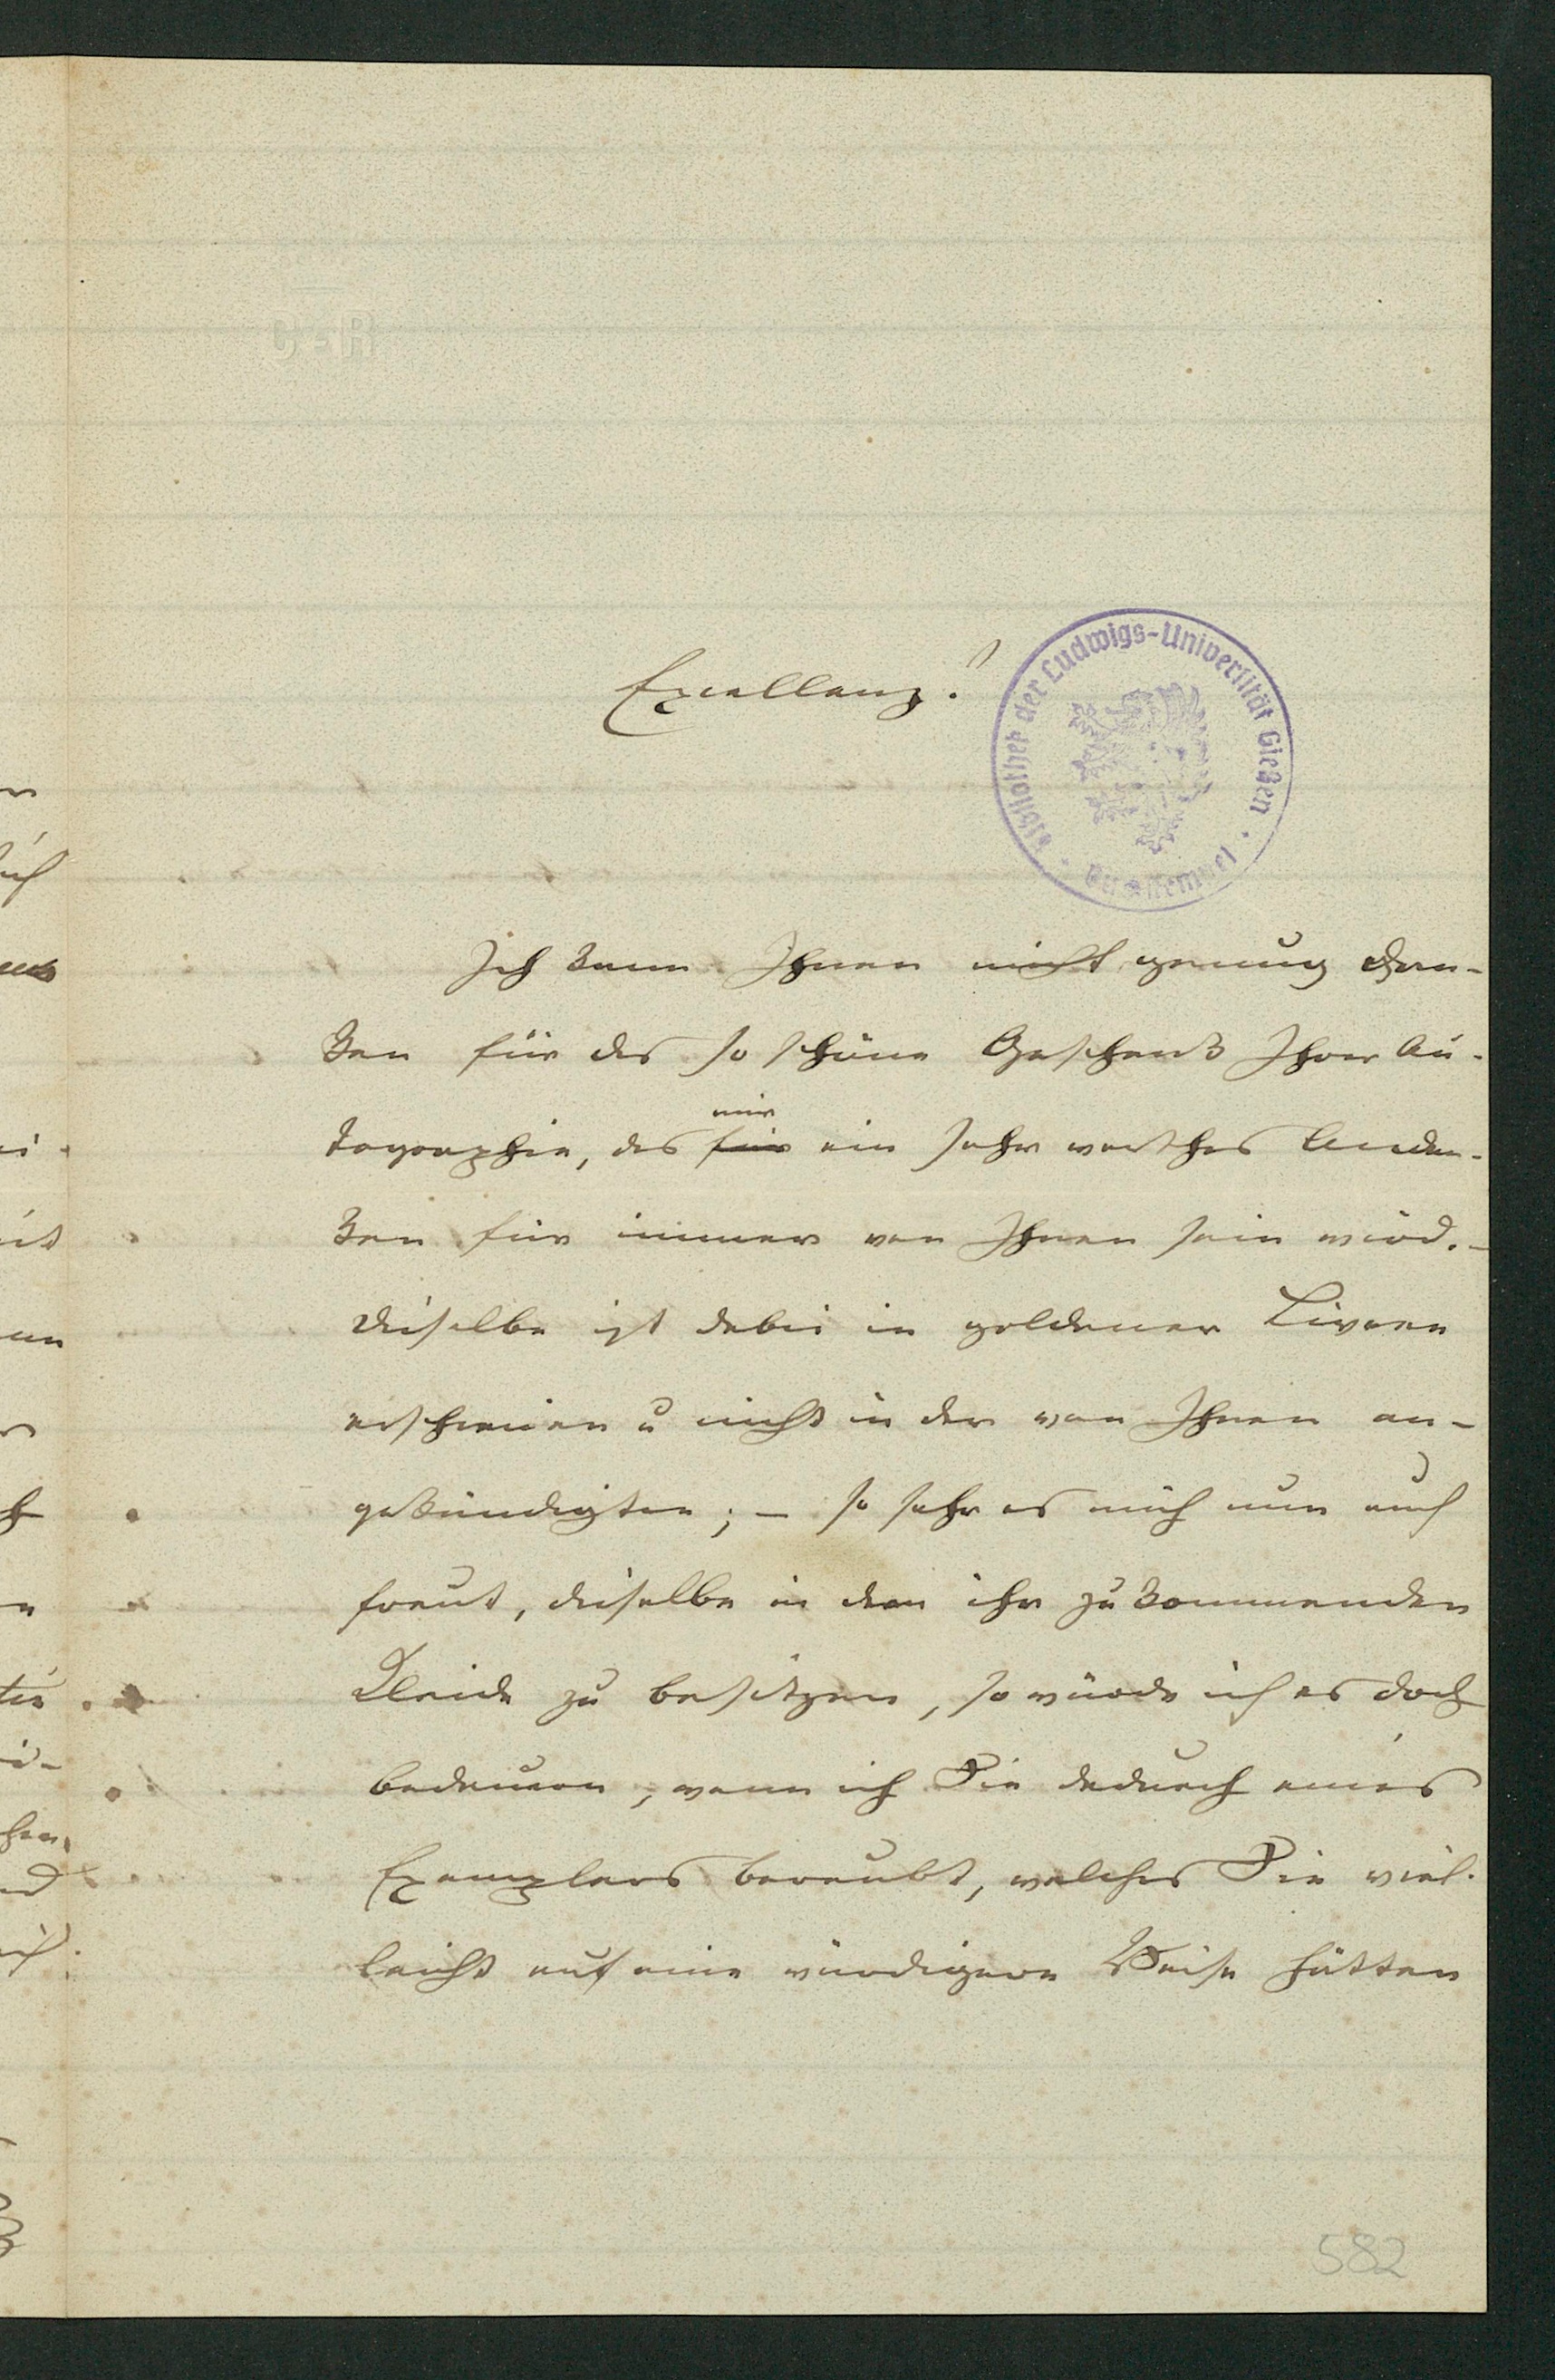 C-R
Excellenz!
Bibliothek der Ludwigs-Universität Gießen
Ich kann Ihnen nicht genug dan-
ken für das so schöne Geschenk Ihrer Au-
mir
togographie, das für ein sehr werthes Anden-
ken für immer von Ihnen sein wird. –
Dieselbe ist dabei in goldener Livree
erschienen u nicht in der von Ihnen an-
gekündigten; – so sehr es mich nun auch
freut, dieselbe in dem ihr zukommenden
Kleide zu besitzen, so würde ich es doch
bedauern, wenn ich Sie dadurch eines
Exemplars beraubt, welches Sie viel-
leicht auf eine würdigere Weise hätten
582